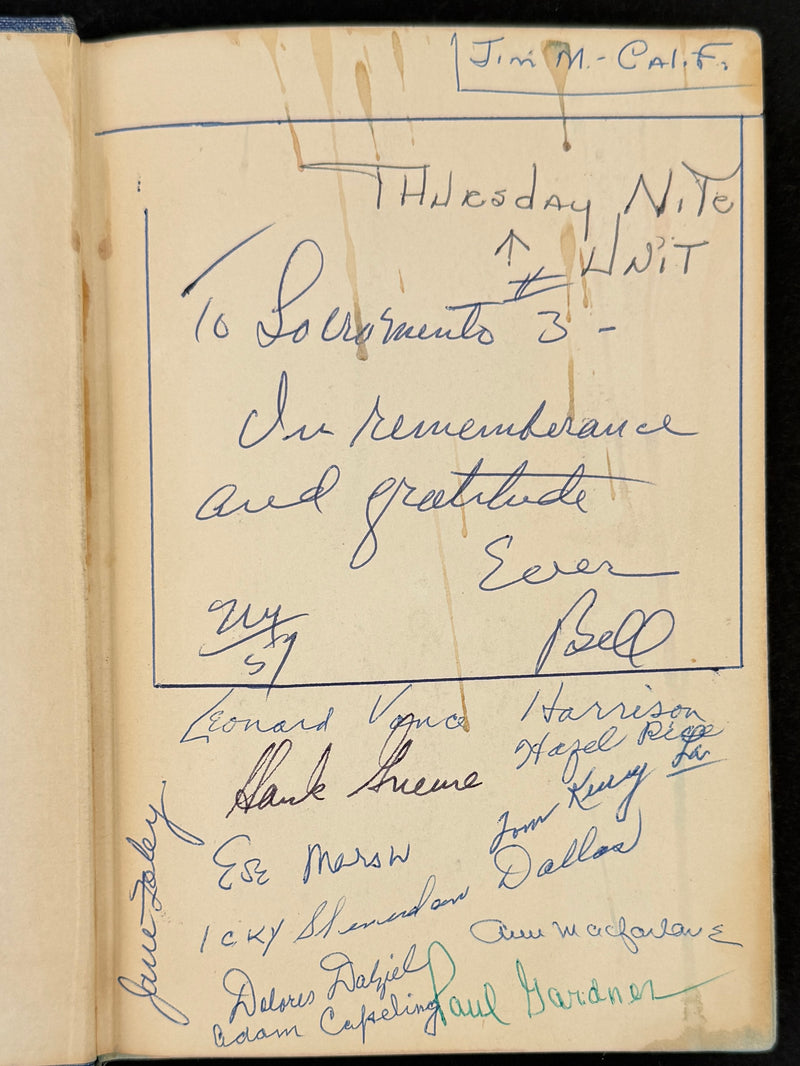 Jim M. - CAL.F.
THURSday NiTe
↑ # UNiT
To Sacramento 3 -
In rememberance
and gratitude
Ever
Bill
NY/57
Leonard Vance Harrison
Hazel Rice
Hank Greene
Tom Kerry La.
Ese Marsh
Dallas
Icky Sheridan
Ann Macfarlane
Dolores Dalziel
Adam Capeling
Paul Gardner
Jane Foley